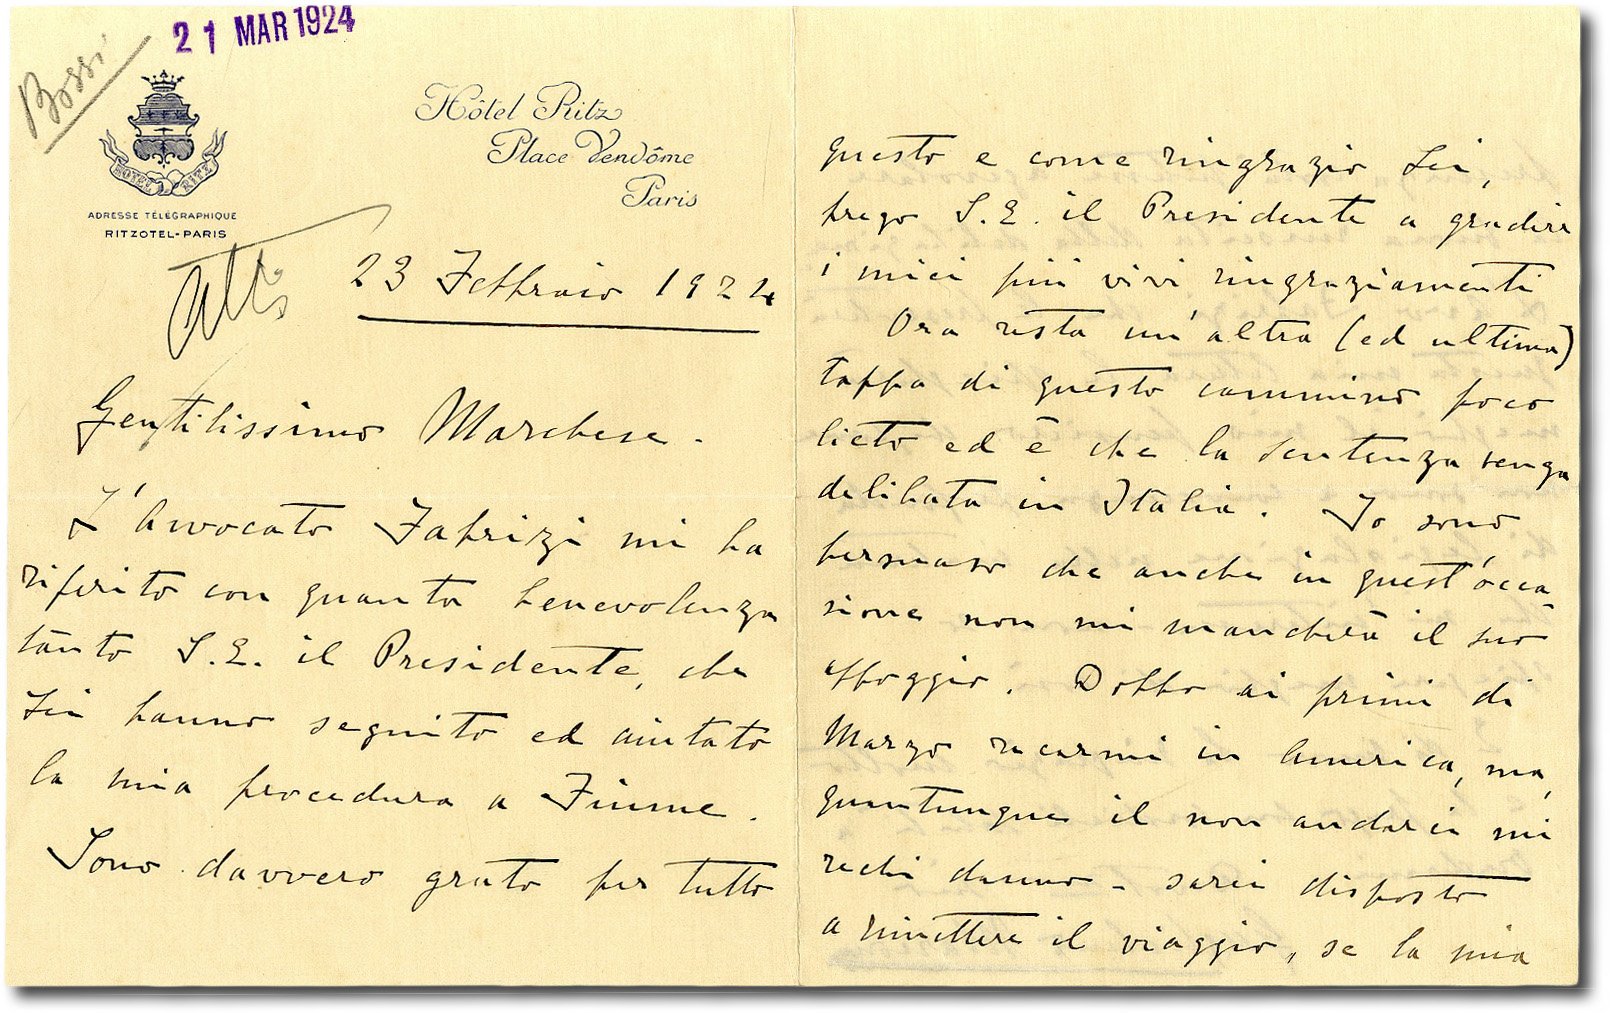 21 MAR 1924
Bossi
HOTEL RITZ
ADRESSE TÉLÉGRAPHIQUE
RITZOTEL-PARIS
Hôtel Ritz
Place Vendôme
Paris
Atti
23 Febbraio 1924
Gentilissimo Marchese.
L'Avvocato Fabrizi mi ha
riferito con quanta benevolenza
tanto S.E. il Presidente, che
Lei hanno seguito ed aiutato
la mia procedura a Fiume.
Sono davvero grato per tutto
questo e come ringrazio Lei,
prego S.E. il Presidente a gradire
i miei più vivi ringraziamenti
Ora resta un'altra (ed ultima)
tappa di questo cammino poco
lieto ed è che la sentenza venga
delibata in Italia. Io sono
persuaso che anche in quest'occa-
sione non mi mancherà il suo
appoggio. Dobbo ai primi di
Marzo recarmi in America, ma,
quantunque il non andarci mi
rechi danno - sarei disposto
a rimettere il viaggio, se la mia